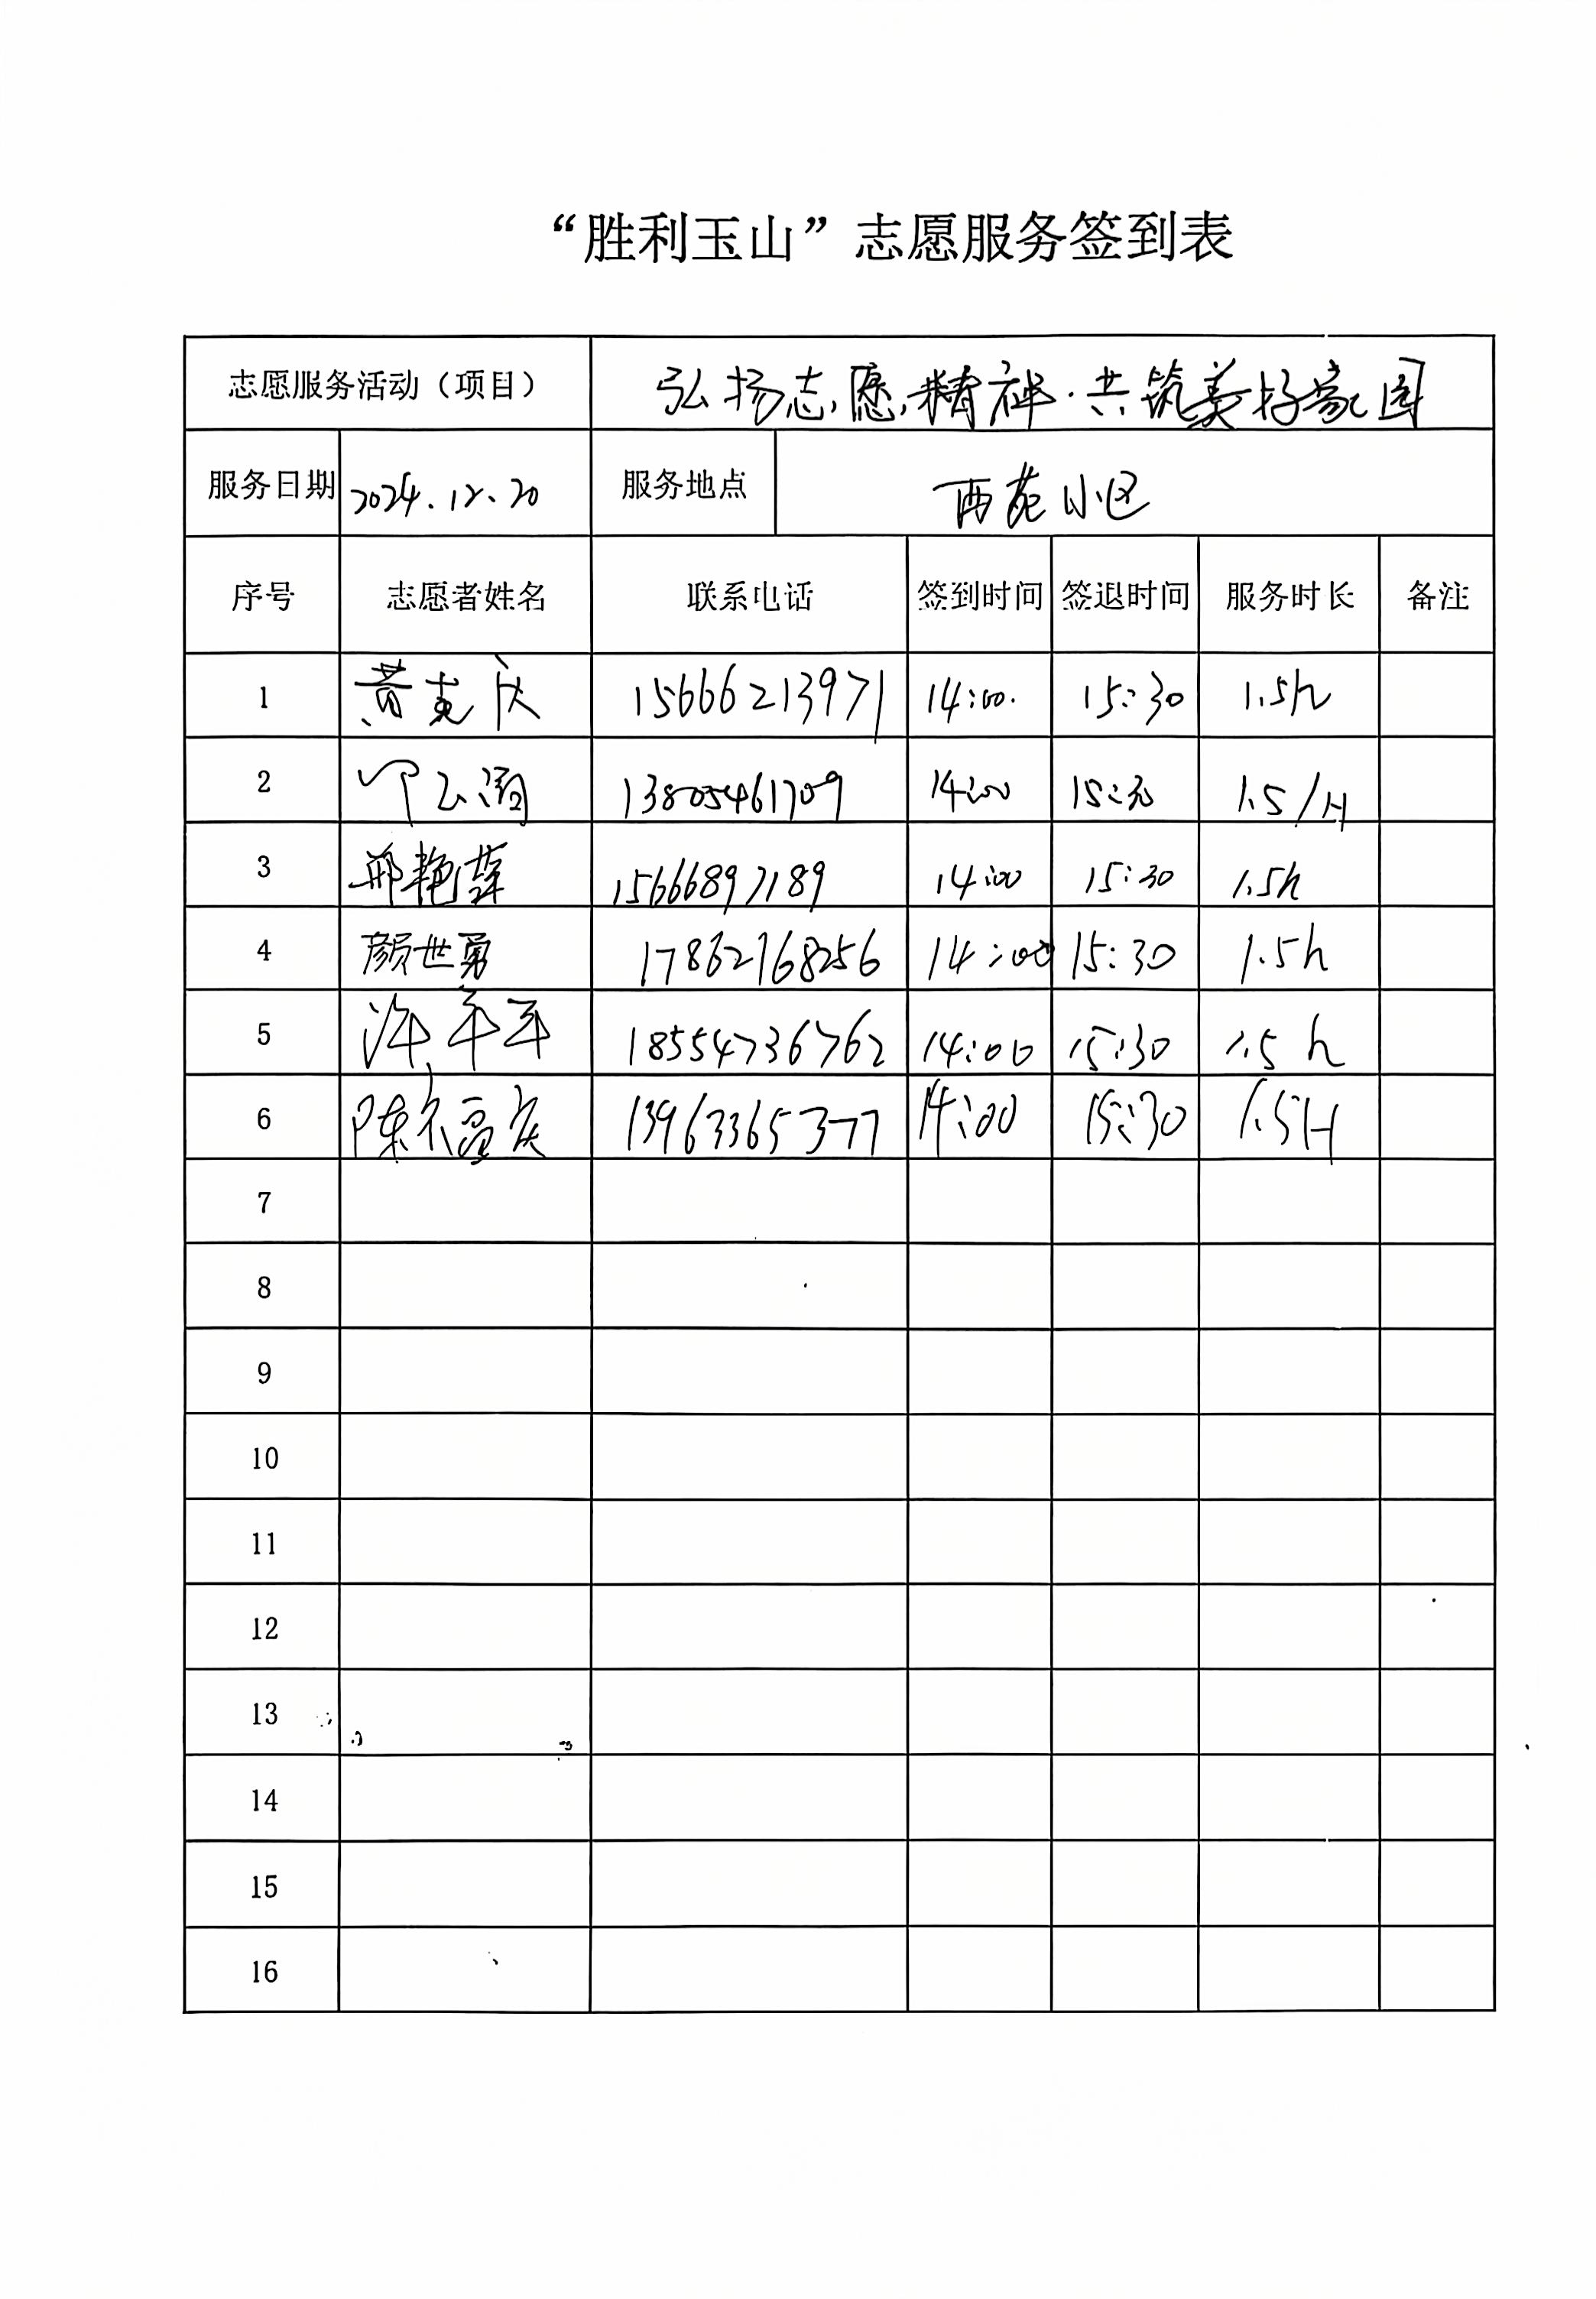 “胜利玉山”志愿服务签到表
志愿服务活动（项目） 弘扬志愿精神·共筑美好家园
服务日期 2024.12.20 服务地点 西苑小区
序号 志愿者姓名 联系电话 签到时间 签退时间 服务时长 备注
1 黄克庆 15666213971 14:00. 15:30 1.5h
2 13805461709 14:00 15:30 1.5/H
3 15666897189 14:00 15:30 1.5h
4 颜世勇 17862768256 14:00 15:30 1.5h
5 许平平 18554736762 14:00 15:30 1.5h
6 13963365377 14:00 15:30 1.5H
7
8
9
10
11
12
13
14
15
16